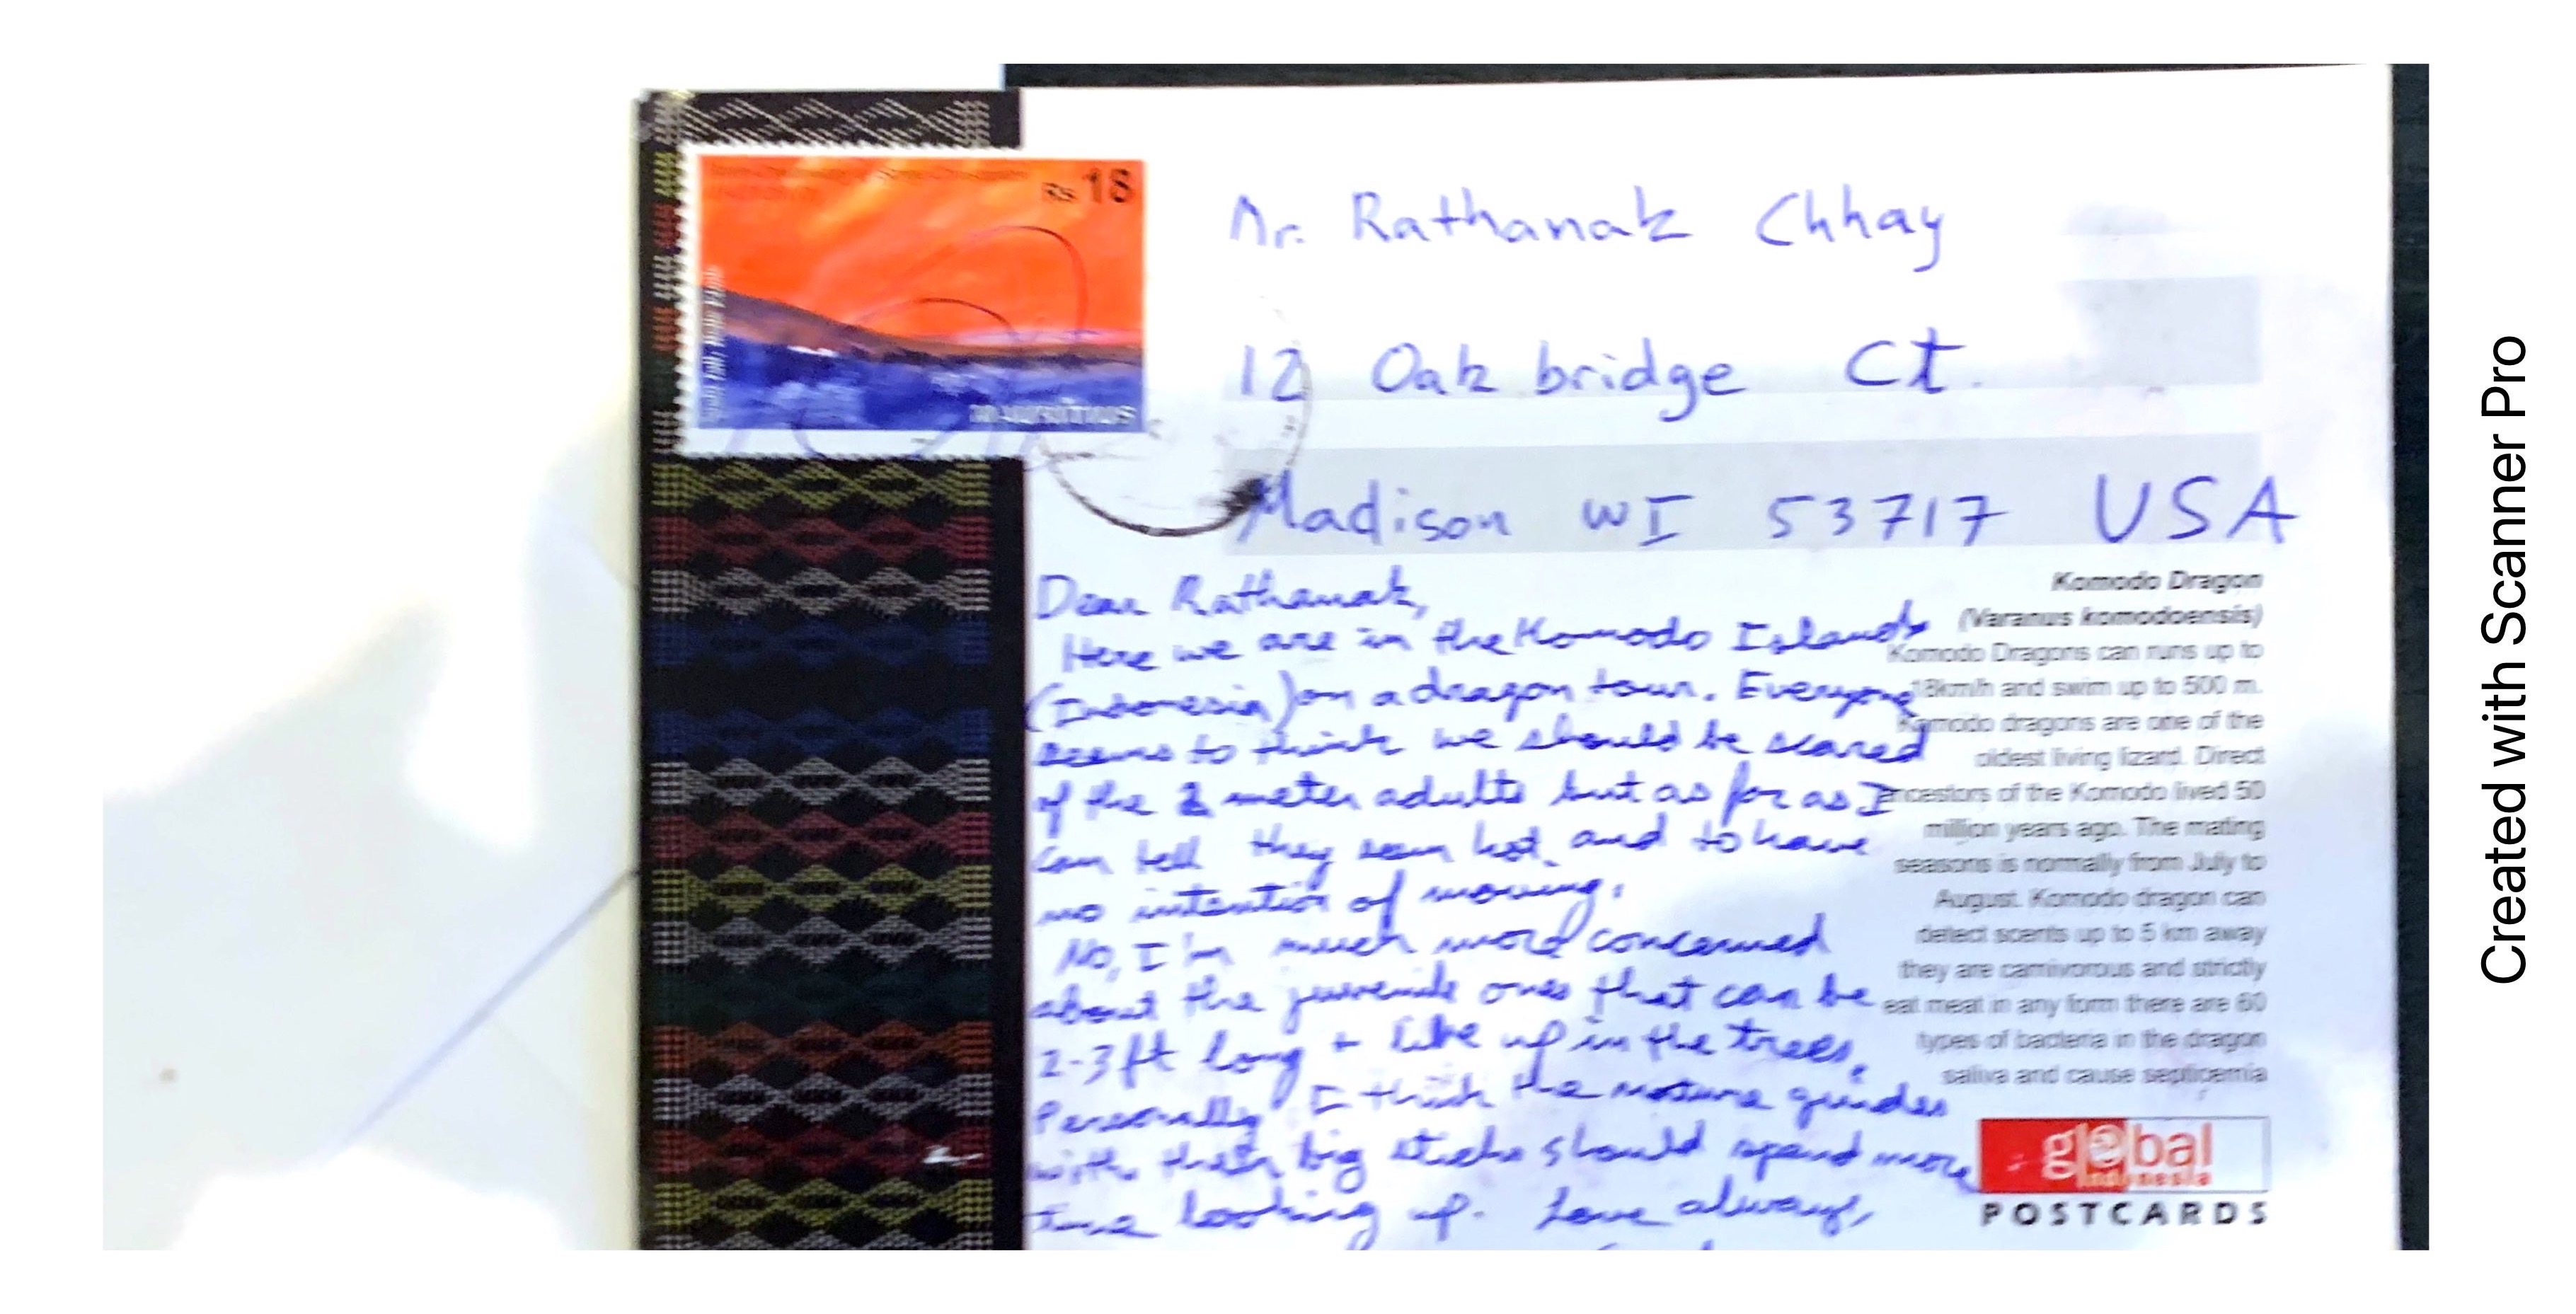 Rs 18
MAURITIUS
Mr. Rathanak Chhay
12 Oakbridge Ct.
Madison WI 53717 USA
Dear Rathanak,
Here we are in the Komodo Islands
(Indonesia) on a dragon tour. Everyone
seems to think we should be scared
of the 2 meter adults but as far as I
can tell they seem hot and to have
no intention of moving.
No, I'm much more concerned
about the juvenile ones that can be
2-3 ft long + like up in the trees.
Personally I think the nature guides
with their big sticks should spend more
time looking up. Love always,
Komodo Dragon
(Varanus komodoensis)
Komodo Dragons can runs up to
18km/h and swim up to 500 m.
Komodo dragons are one of the
oldest living lizard. Direct
ancestors of the Komodo lived 50
million years ago. The mating
seasons is normally from July to
August. Komodo dragon can
detect scents up to 5 km away
they are carnivorous and strictly
eat meat in any form there are 60
types of bacteria in the dragon
saliva and cause septicemia
global
indonesia
POSTCARDS
Created with Scanner Pro